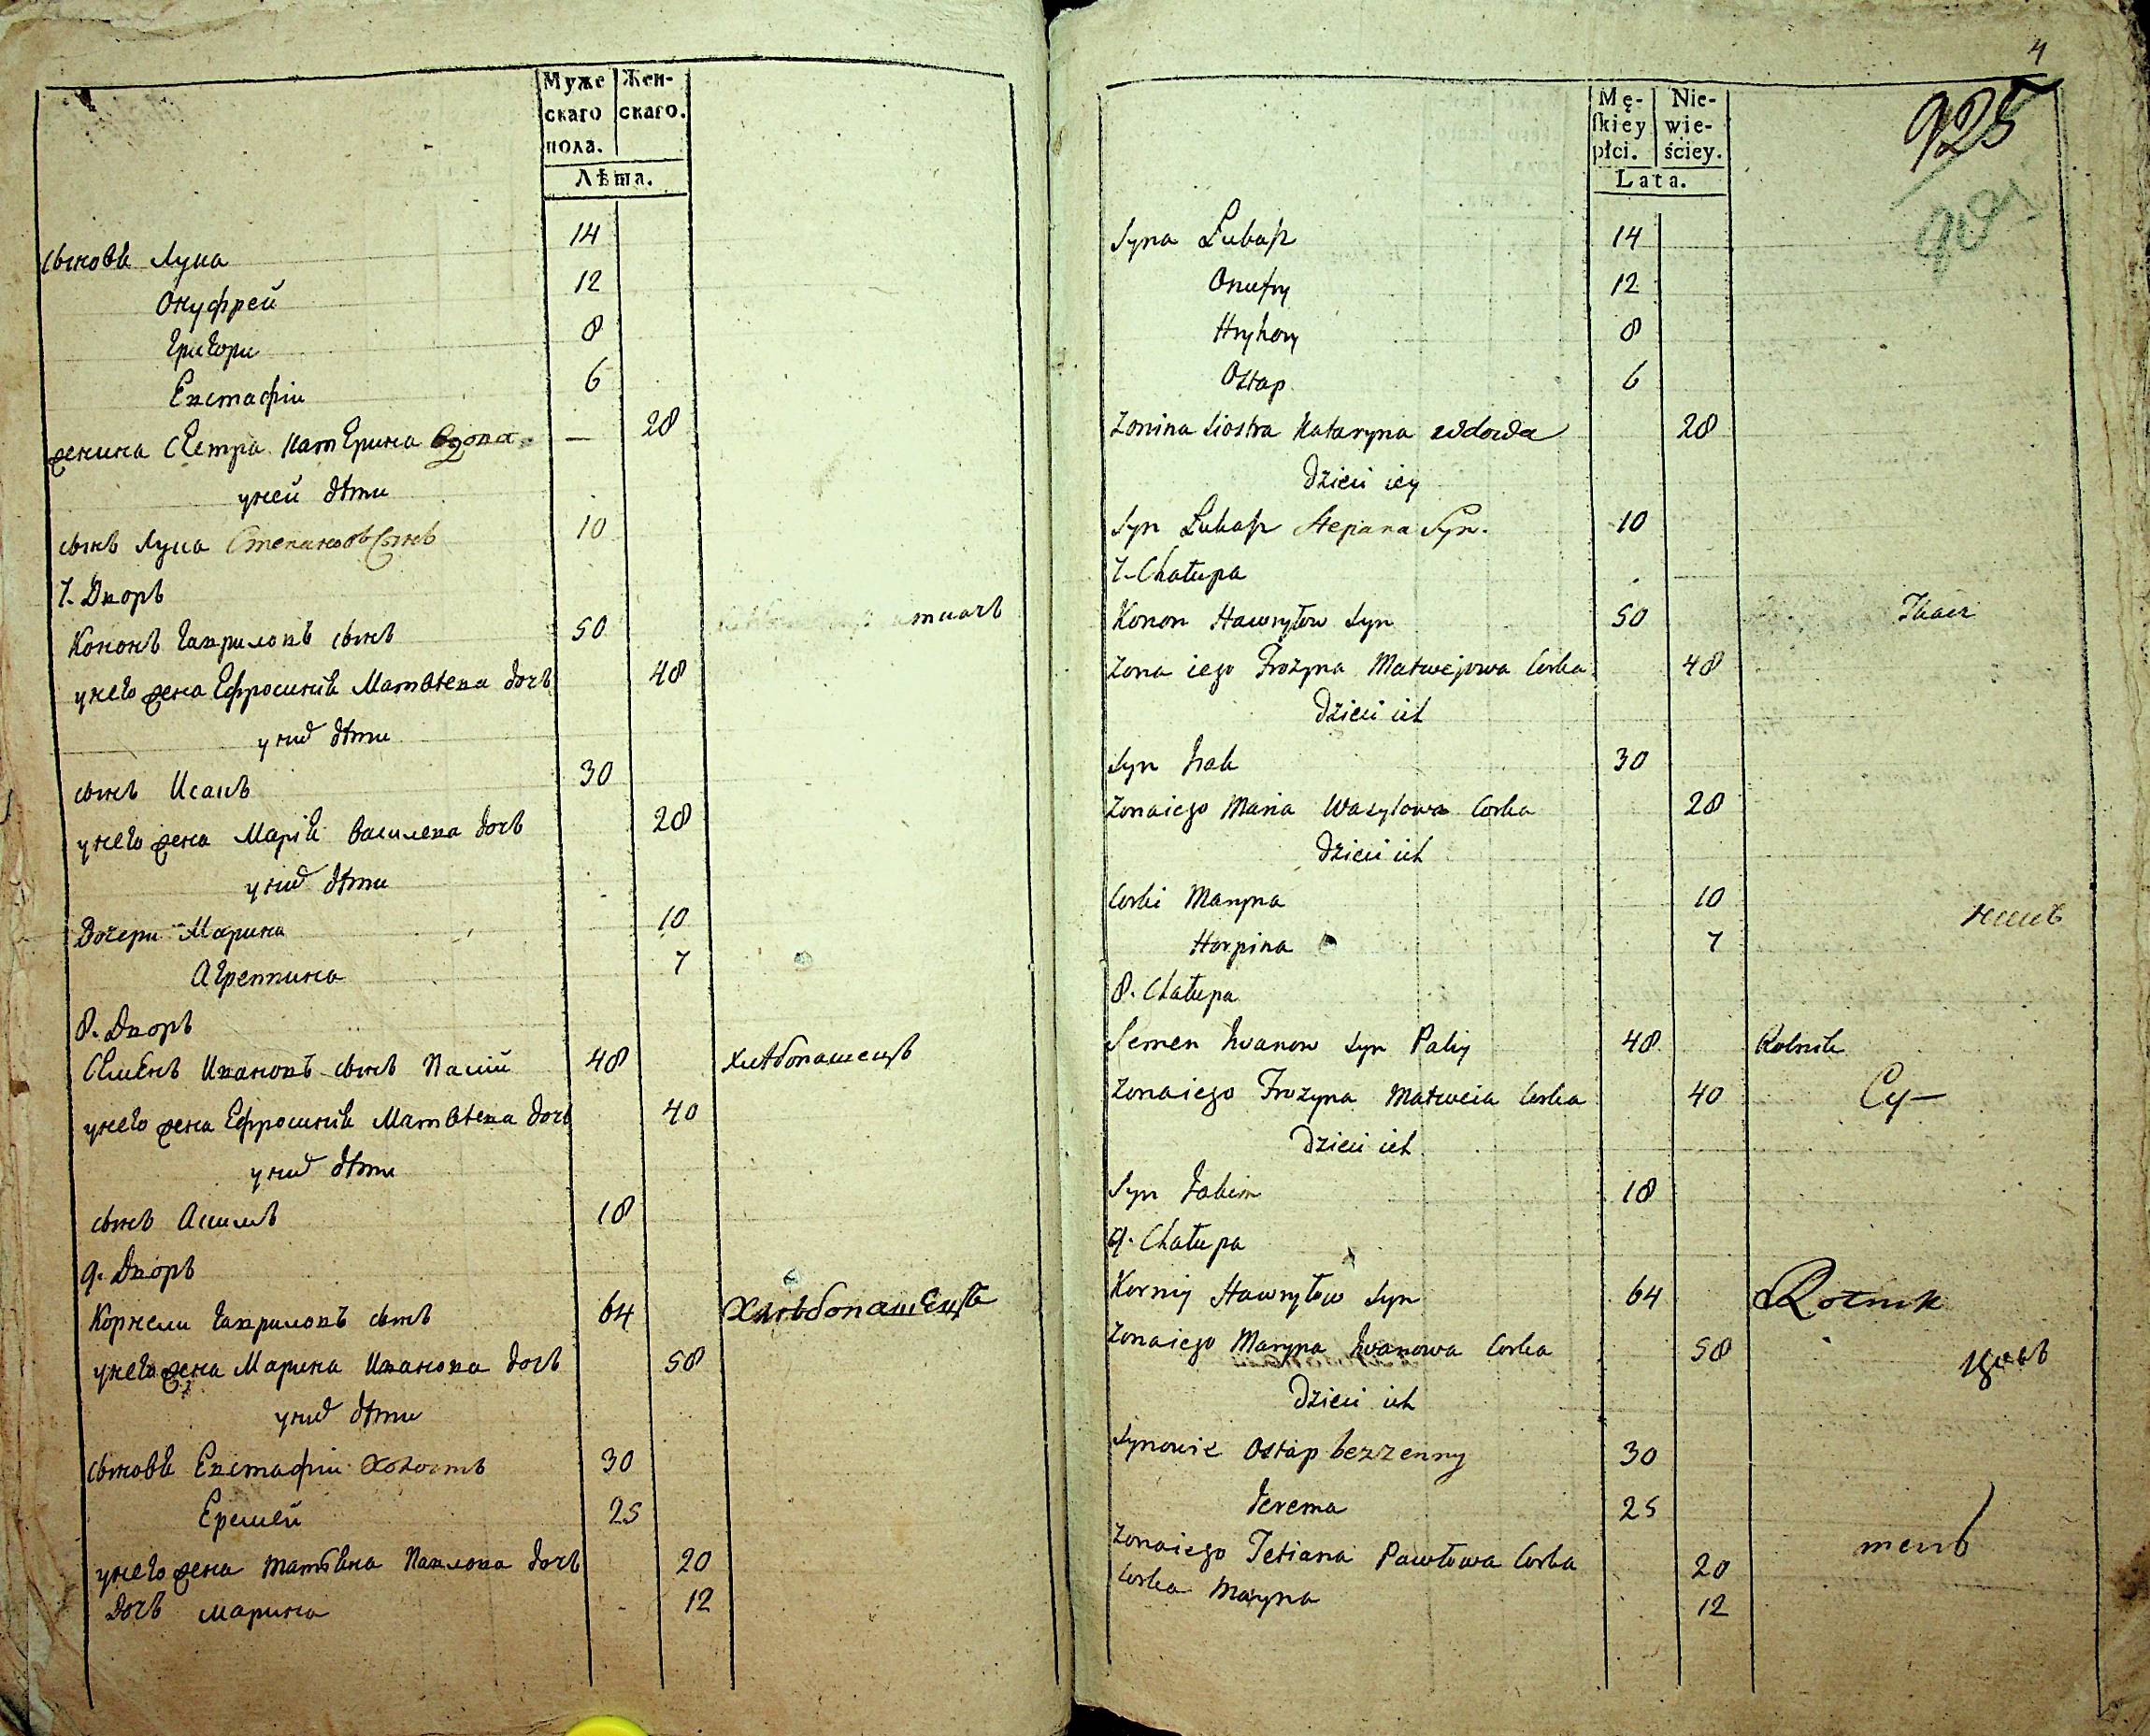 Муже Жен-
скаго скаго.
пола.
Лѣта.
сыновѣ Лука 14
Онуфрей 12
Григори 8
Евстафiи 6
женина сестра катерина вдова — 28
унеи дѣти
сынъ Лука Степановъ сынъ 10
7. Дворъ
Кононъ Гавриловъ сынъ 50 ткачъ
унего жена Ефросинiѣ Матвѣева дочь 48
униx дѣти
сынъ Исакъ 30
унего жена Марiѣ василева дочь 28
униx дѣти
Дочери Марина 10
Агрепина 7
8. Дворъ
Семенъ Ивановъ сынъ Палiй 48 хлѣбопашецъ
унего жена Ефросинiѣ Матвѣева дочь 40
униx дѣти
сынъ Акимъ 18
9. Дворъ
Корнели Гавриловъ сынъ 64 Хлѣбопашецъ
унего жена Марина Иванова дочь 58
униx дѣти
сыновѣ Евстафiи Холостъ 30
Еремей 25
унего жена татѣяна Павлова дочь 20
Дочь Марина 12
4
Mę- Nie-
ſkiey wie-
płci. ściey.
Lata.
925
Syna Łukasz 14
Onufry 12
Hryhory 8
Ostap 6
Zonina Siostra Kataryna wdowa 28
Dzieci iey
Syn Łukasz Stepana Syn. 10
7. Chałupa
Konon Hawryłow Syn 50 Tkacz
Zona iego Frozyna Matwejowa Corka 48
Dzieci ich
Syn Isak 30
Zona iego Maria Wasylowa Corka 28
Dzieci ich
Corki Maryna 10
Horpina 7
8. Chałupa
Semen Iwanow Syn Paliy 48 Rolnik
Zona iego Frozyna Matweia Corka 40 Су-
Dzieci ich
Syn Jakim 18
9. Chałupa
Korniy Hawryłow Syn 64 Rolnik
Zona iego Maryna Iwanowa Corka 58
Dzieci ich
Synowie Ostap bezzenny 30
Jerema 25
Zona iego Tetiana Pawłowa Corka 20
Corka Maryna 12